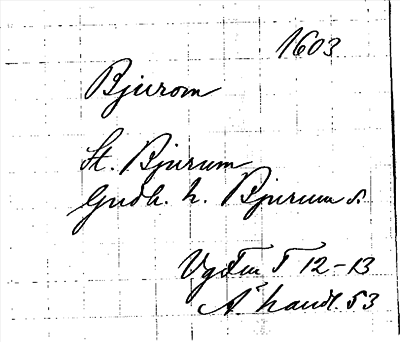 1603
Bjurom
St. Bjurum
Gudh. h. Bjurum s.
Vg Fm T 12-13
Ä. handl. 53